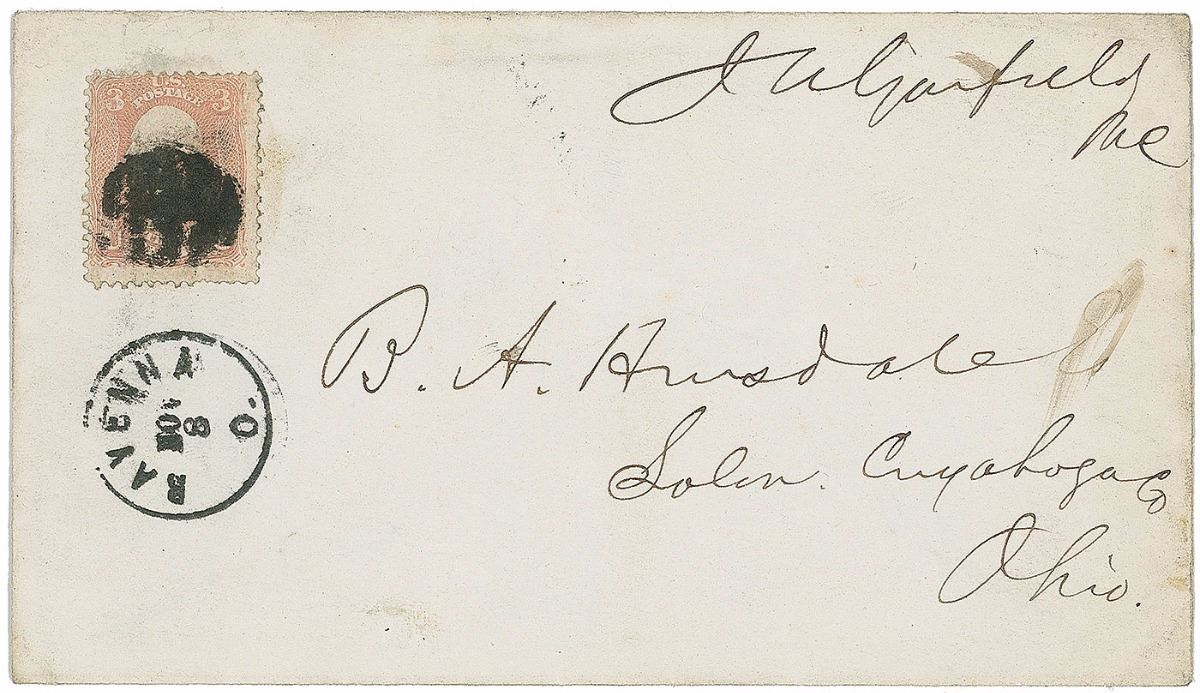 J A Garfield
MC
U.S.
3 POSTAGE 3
RAVENNA O.
NOV
8
B. A. Hinsdale
Solon. Cuyahoga Co
Ohio.